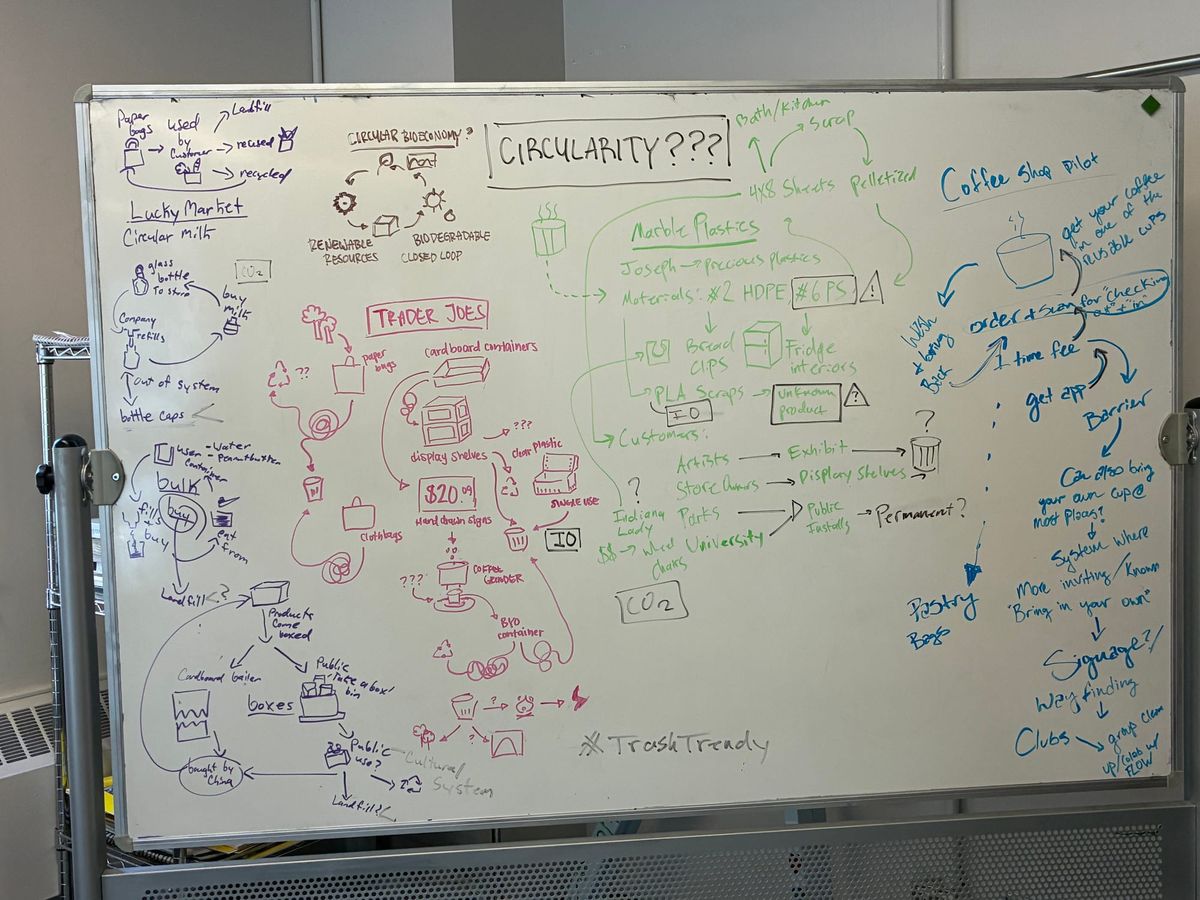 Paper
bags
used
by
customer
Landfill
reused
recycled
Lucky Market
Circular Milk
glass
bottle
to store
CO2
buy
milk
Company
refills
out of system
bottle caps
user
container
- Water
- Peanutbutter
bulk
buy
fills
+
buy
eat
from
Landfill?
Products
come
boxed
Cardboard bailer
Public
"take a box"
bin
boxes
Public
use?
Cultural
System
bought by
China
Landfill?
CIRCULAR BIOECONOMY?
RENEWABLE
RESOURCES
BIODEGRADABLE
CLOSED LOOP
CIRCULARITY???
TRADER JOES
??
paper
bags
cardboard containers
display shelves
???
clear plastic
SINGLE USE
$20.09
Hand drawn signs
IO
cloth bags
COFFEE
GRINDER
???
BYO
container
?
?
#TrashTrendy
Bath/Kitchen
Scrap
4x8 Sheets
Pelletized
?
Marble Plastics
Joseph → precious plastics
Materials: #2 HDPE #6 PS
!
Bread
clips
Fridge
interiors
PLA Scraps
unknown
product
?
IO
Customers:
Artists → Exhibit
?
Store Owners → Display Shelves
?
Indiana
Lady
Parks
Public
Installs → Permanent?
$$ → wheel
chairs
University
CO2
Coffee Shop Pilot
get your coffee
in one of the
reusable cups
Wash
+ bring
Back
order + scan for "checking
out" + "in"
1 time fee
get app
Barrier
Can also bring
your own cup @
most places?
System where
More inviting/known
"Bring in your own"
Pastry
Bags
Signage?/
Way finding
Clubs
group clean
up/colab w/
FLOW